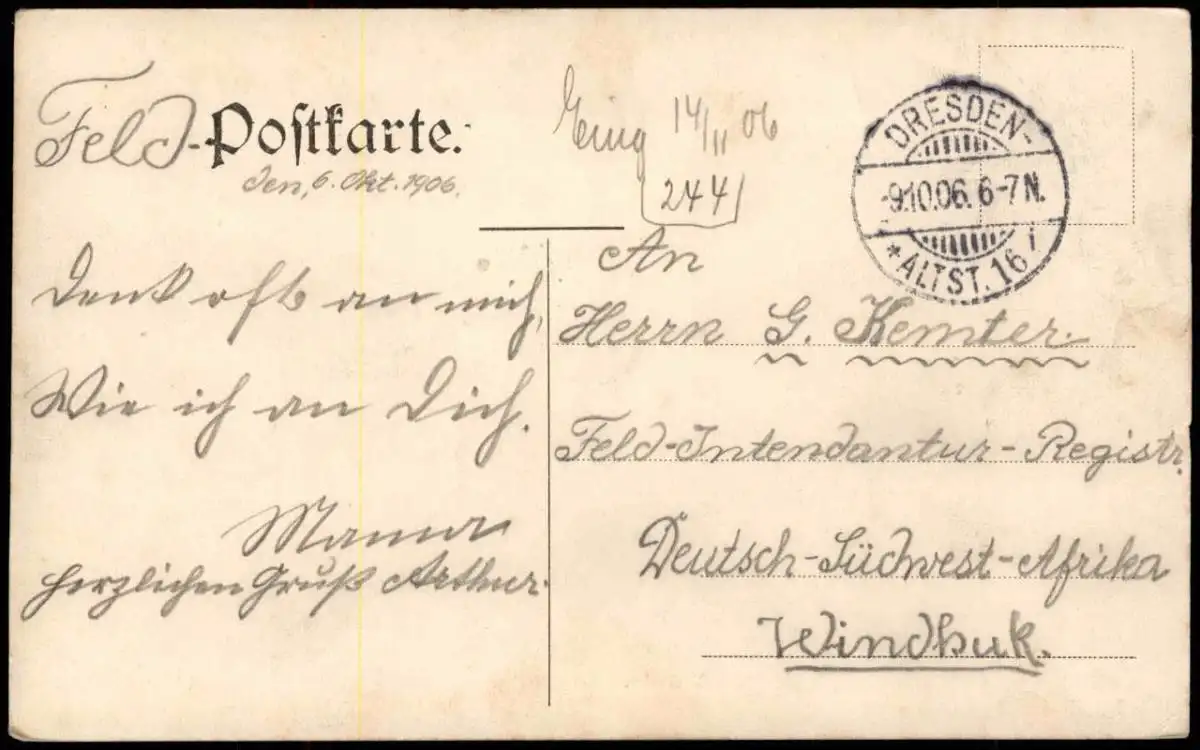 Feld-Postkarte.
den, 6. Okt. 1906.
Eing 14/11 06
244
DRESDEN-
-9.10.06. 6-7 N.
* ALTST. 16 i
Denk oft an mich,
Wie ich an Dich.
Mama
herzlichen Gruß Arthur.
An
Herrn G. Kemter.
Feld-Intendantur-Registr.
Deutsch-Südwest-Afrika
Windhuk.